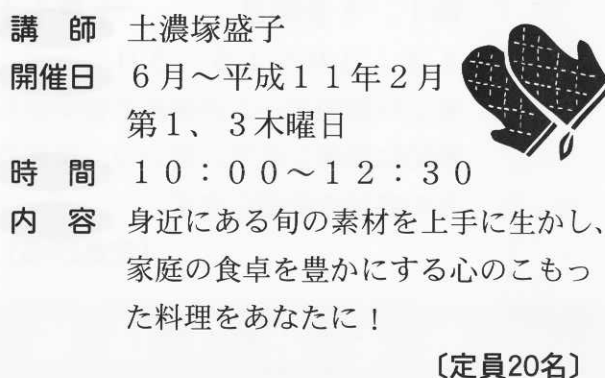 講　師　土濃塚盛子
開催日　６月～平成１１年２月
第１、３木曜日
時　間　１０：００～１２：３０
内　容　身近にある旬の素材を上手に生かし、
家庭の食卓を豊かにする心のこもっ
た料理をあなたに！
〔定員20名〕